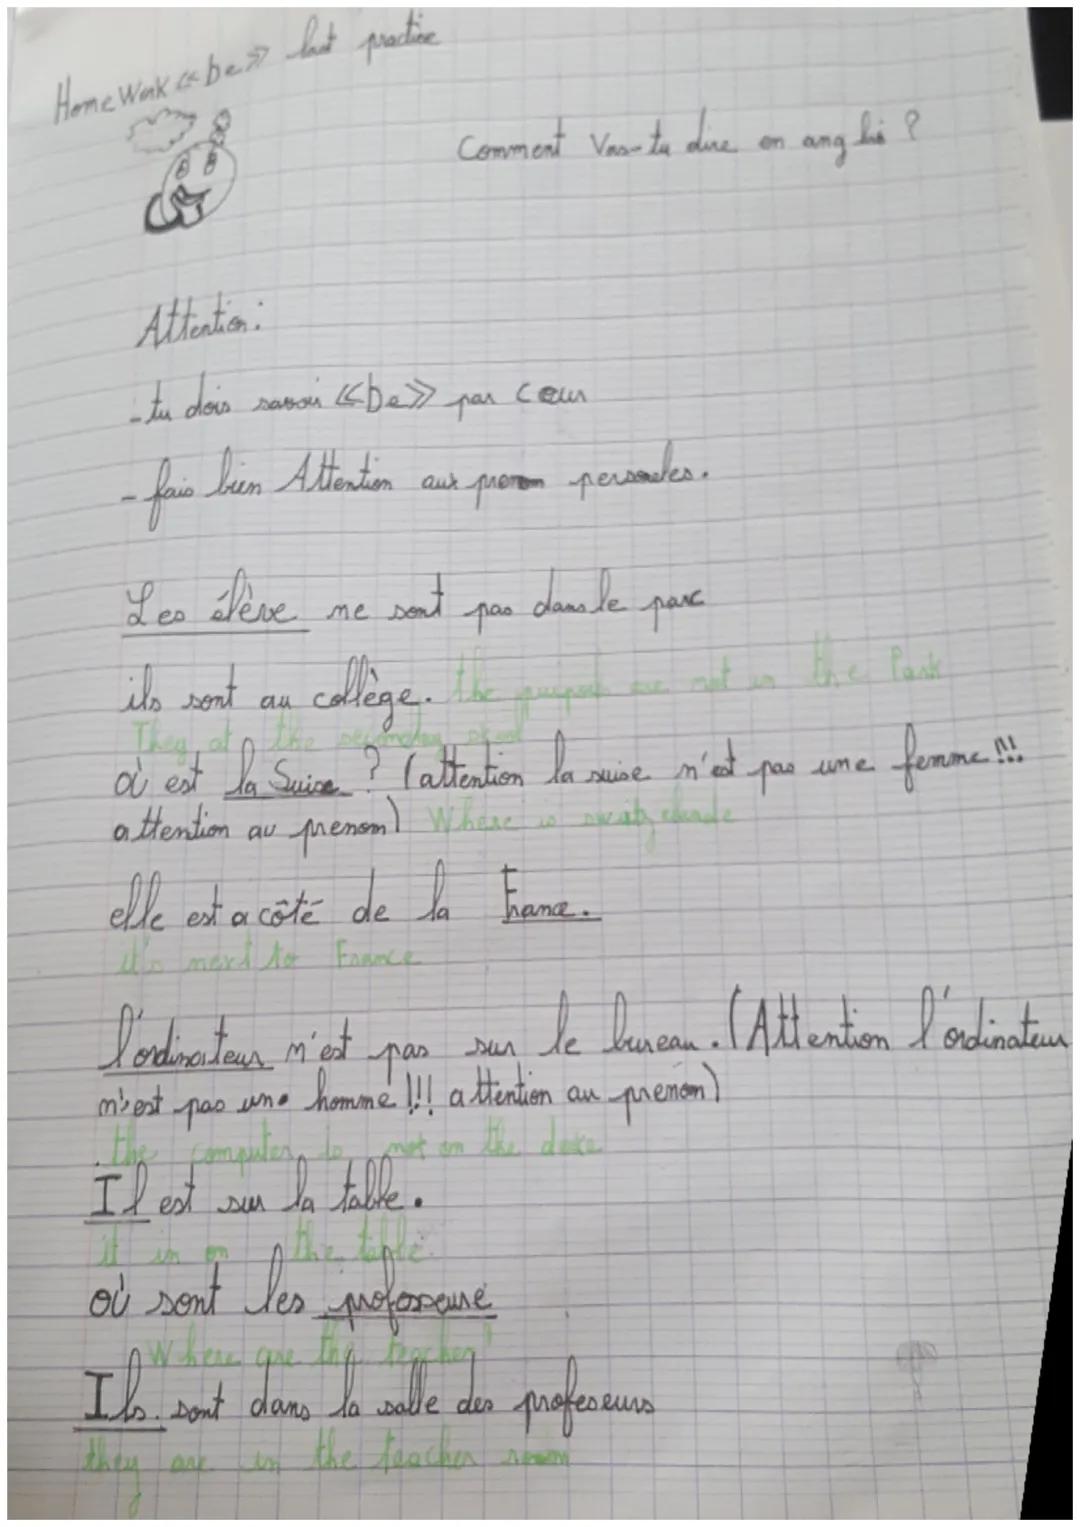 Home Work «be» last practice
Comment Vas-tu dire en anglais ?
Attention :
- tu dois savoir «be» par cœur
- fais bien Attention aux pronom personeles.
Les élève ne sont pas dans le parc
ils sont au collège. the are not in the Park
They at the secondary
où est la Suise ? (attention la suise n'est pas une femme !!!
attention au prenom) Where is
elle est a côté de la France.
it's next to France
l'ordinateur n'est pas sur le bureau. (Attention l'ordinateur
n'est pas une homme !!! attention au prenom)
the computer is not on the
Il est sur la table.
it is on the table.
où sont les
Where are the teacher
Ils. sont dans la salle des profeseurs
they are in the teacher room